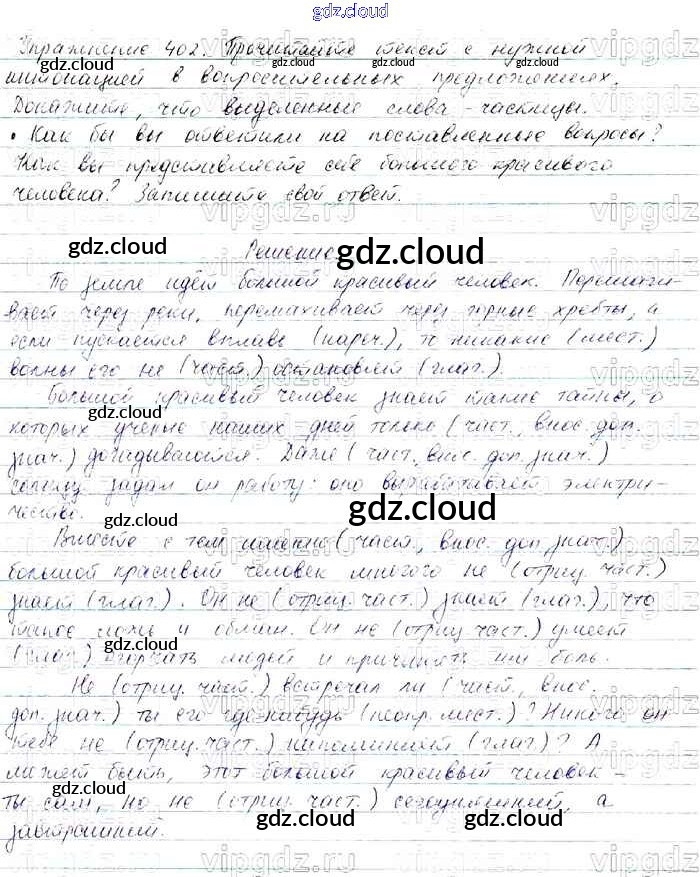 gdz.cloud
Упражнение 402. Прочитайте текст с нужной
интонацией в вопросительных предложениях.
Докажите, что выделенные слова - частицы.
• Как бы вы ответили на поставленные вопросы?
Как вы представляете себе большого красивого
человека? Запишите свой ответ.
gdz.cloud
Решение
gdz.cloud
По земле идёт большой красивый человек. Перешаги-
вает через реки, перемахивает через горные хребты, а
если пускается вплавь (нареч.), то никакие (мест.)
волны его не (част.) остановят (глаг.).
Большой красивый человек знает такие тайны, о
gdz.cloud
которых учёные наших дней только (част., внос. доп.
знач.) догадываются. Даже (част., внос. доп. знач.)
gdz.cloud
солнцу задал он работу: оно вырабатывает электри-
чество.
gdz.cloud
gdz.cloud
Вместе с тем именно (част., внос. доп. знач.)
большой красивый человек многого не (отриц. част.)
знает (глаг.). Он не (отриц. част.) знает (глаг.), что
такое ложь и обман. Он не (отриц. част.) умеет
(глаг.) огорчать людей и причинять им боль.
gdz.cloud
Не (отриц. част.) встречал ли (част., внос.
доп. знач.) ты его где-нибудь (неопр. мест.)? Никого он
gdz.cloud
тебе не (отриц. част.) напоминает (глаг.)? А
может быть, этот большой красивый человек -
ты сам, но не (отриц. част.) сегодняшний, а
gdz.cloud
gdz.cloud
завтрашний.
vipgdz.ru